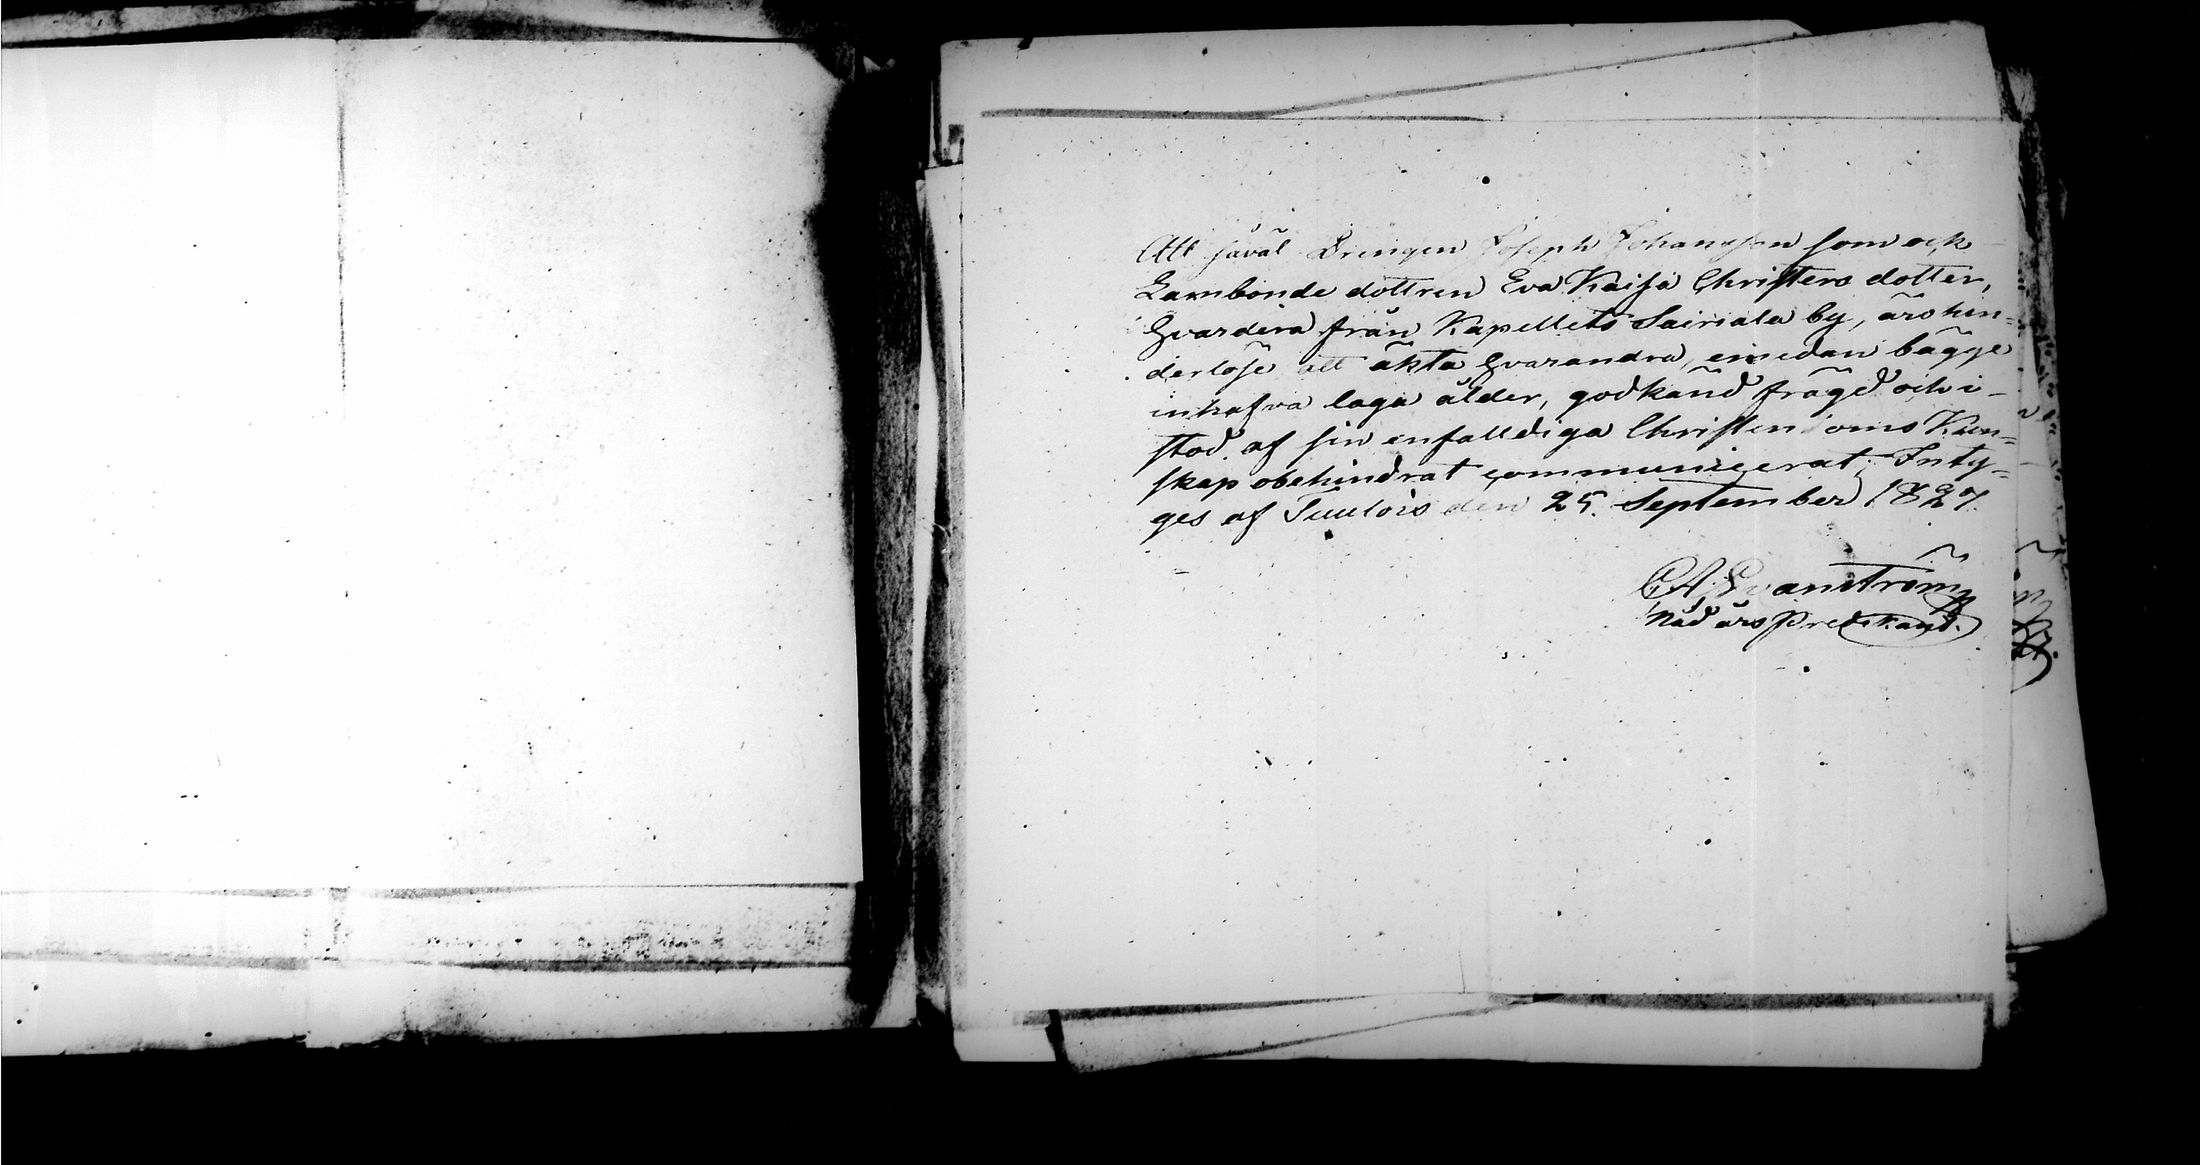 Att såväl Drengen Joseph Johansson som ock
Lambonde dottren Eva Kaisa Christers dotter,
hvardera från Kapellets Sairiala by, äro hin=
derlöse att äkta hvarandra, emedan bägge
inhafva laga ålder, godkänd frägd och i
stöd af sin enfalldiga Christendoms Kun=
skap obehindrat communicerat; Intÿ=
ges af Tuulois den 25. September 1827.
Nådårs Predikand.